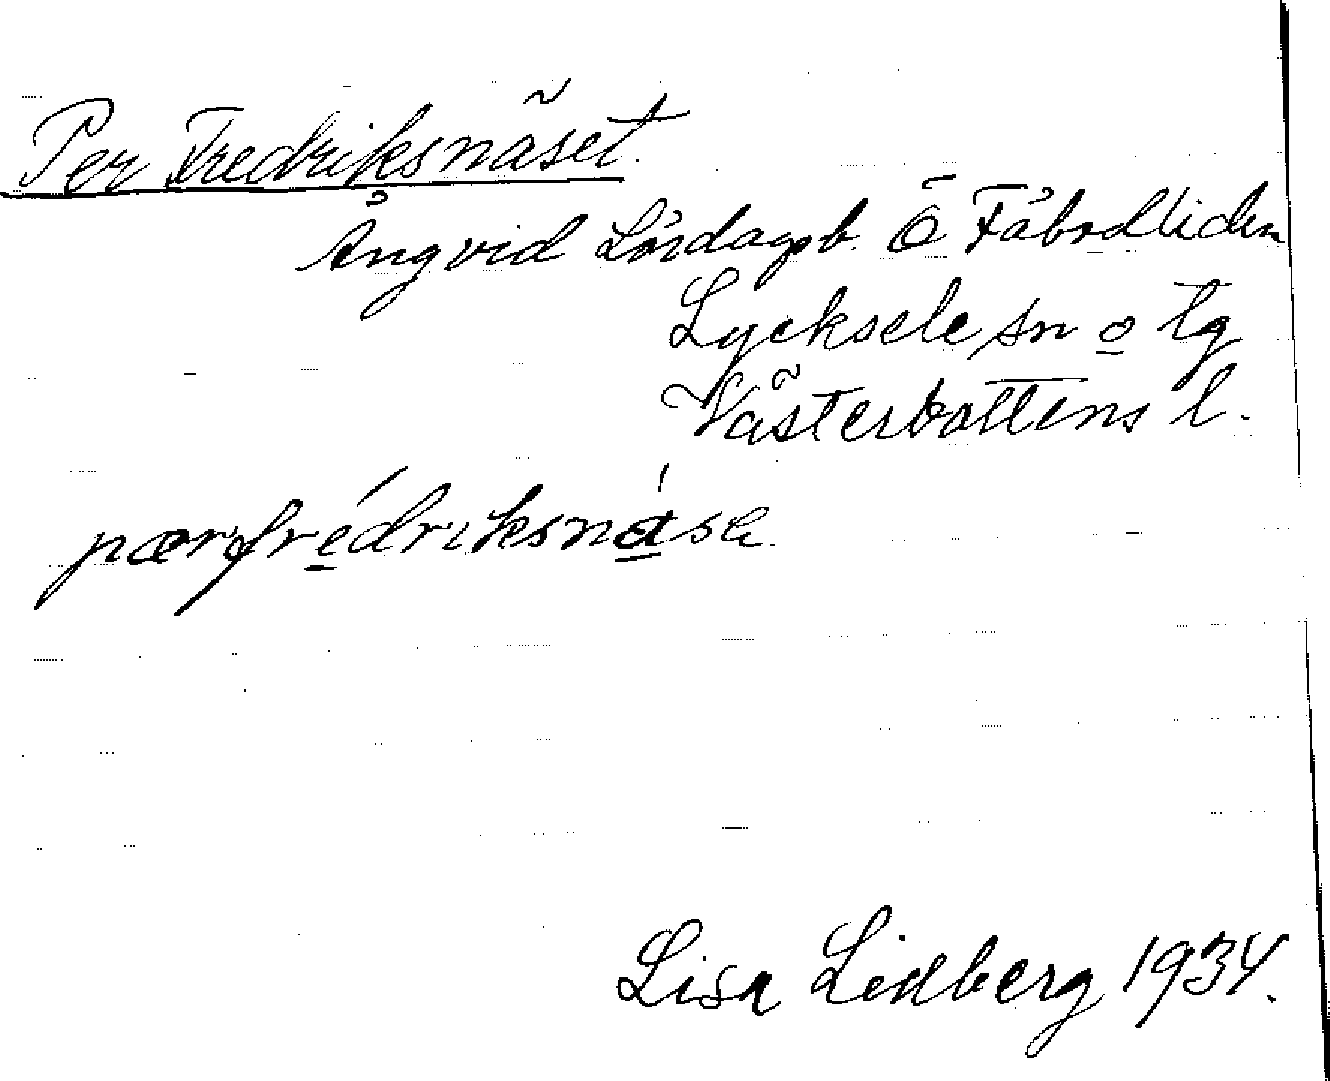 Per Fredriksnäset.
Äng vid Lördagsb. Ö Fäbodliden
Lycksele sn o lg
Västerbottens l.
pærfrédriksnásə
Lisa Lidberg 1934.